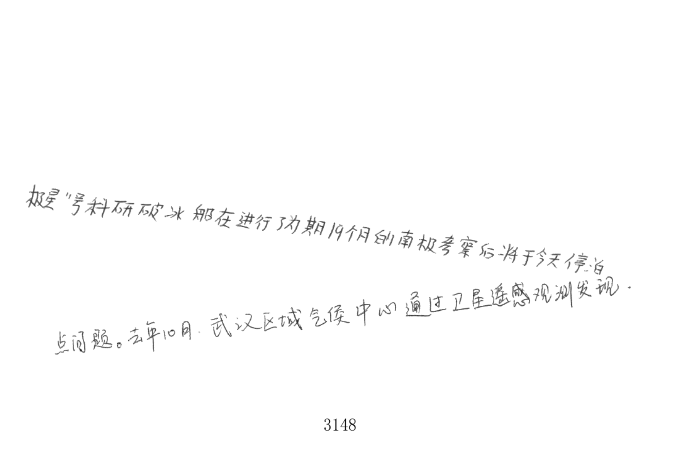 极星"号科研破冰船在进行了为期19个月的南极考察后将于今天停泊
点问题。去年10月.武汉区域气候中心通过卫星遥感观测发现.
3148